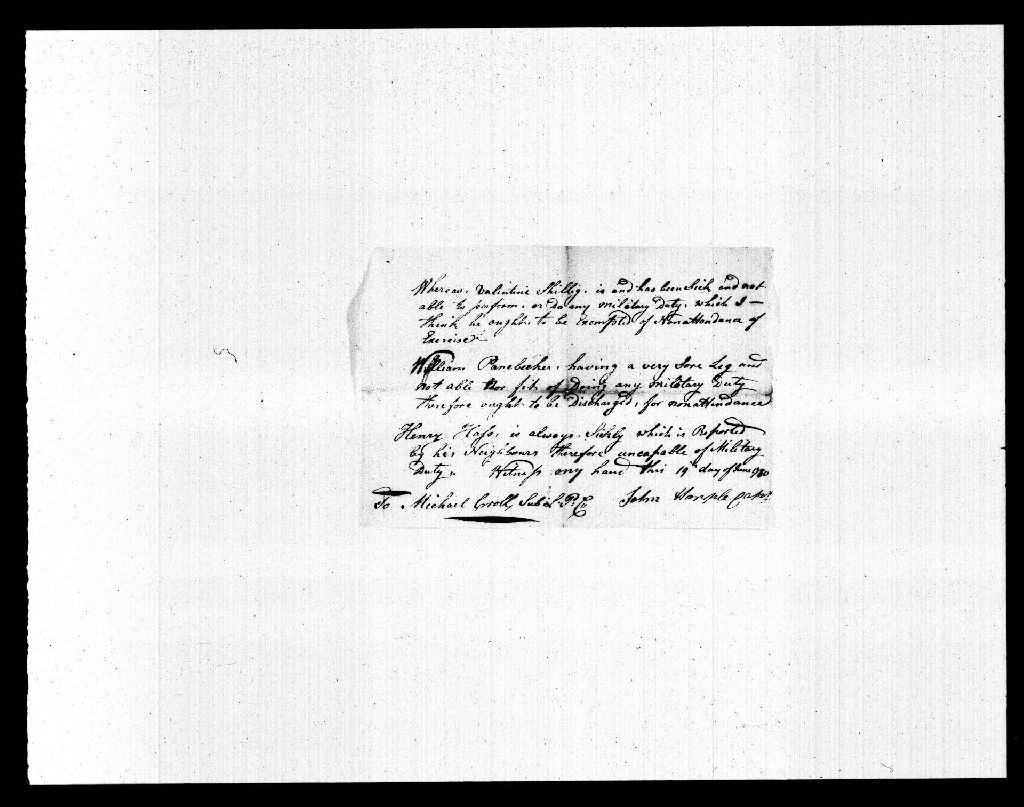 Whereas Valentine Shillig, is and has been Sick and not
able to preform, or Do any military Duty, which I —
think he ought, to be Exempted of Nonattendance of
Exercise
William Panebecker, having a very Sore Leg and
not able Nor fit of Doing any military Duty
therefore ought to be Discharged, for nonattendance
Henry Hass, is always Sickly which is Reported
by his Neighbours therefore uncapable of Military
Duty. Witness my hand this 19th day of June 1780
To Michael Croll, Sub Lt P. C. John